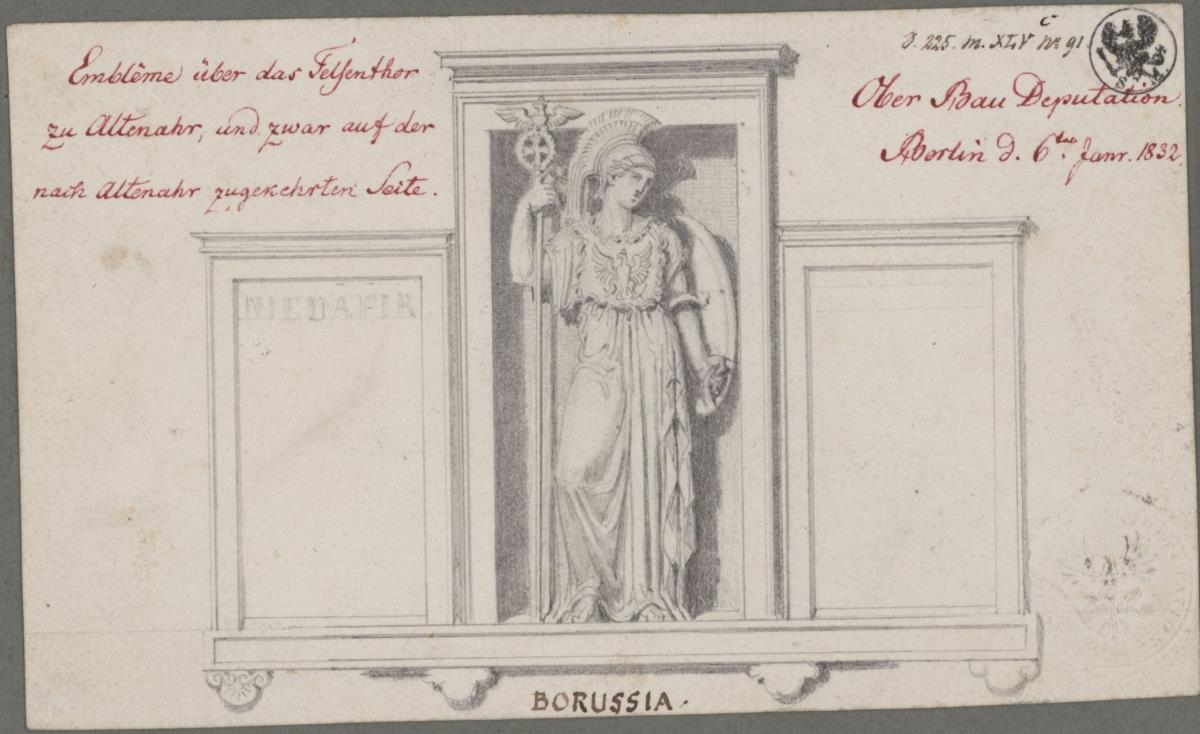 Emblême über das Felsenthor
zu Altenahr, und zwar auf der
nach Altenahr zugekehrten Seite.
C
J. 225. m. XLV No 91
Ober Bau Deputation.
Berlin d. 6ten Janr. 1832
BORUSSIA.